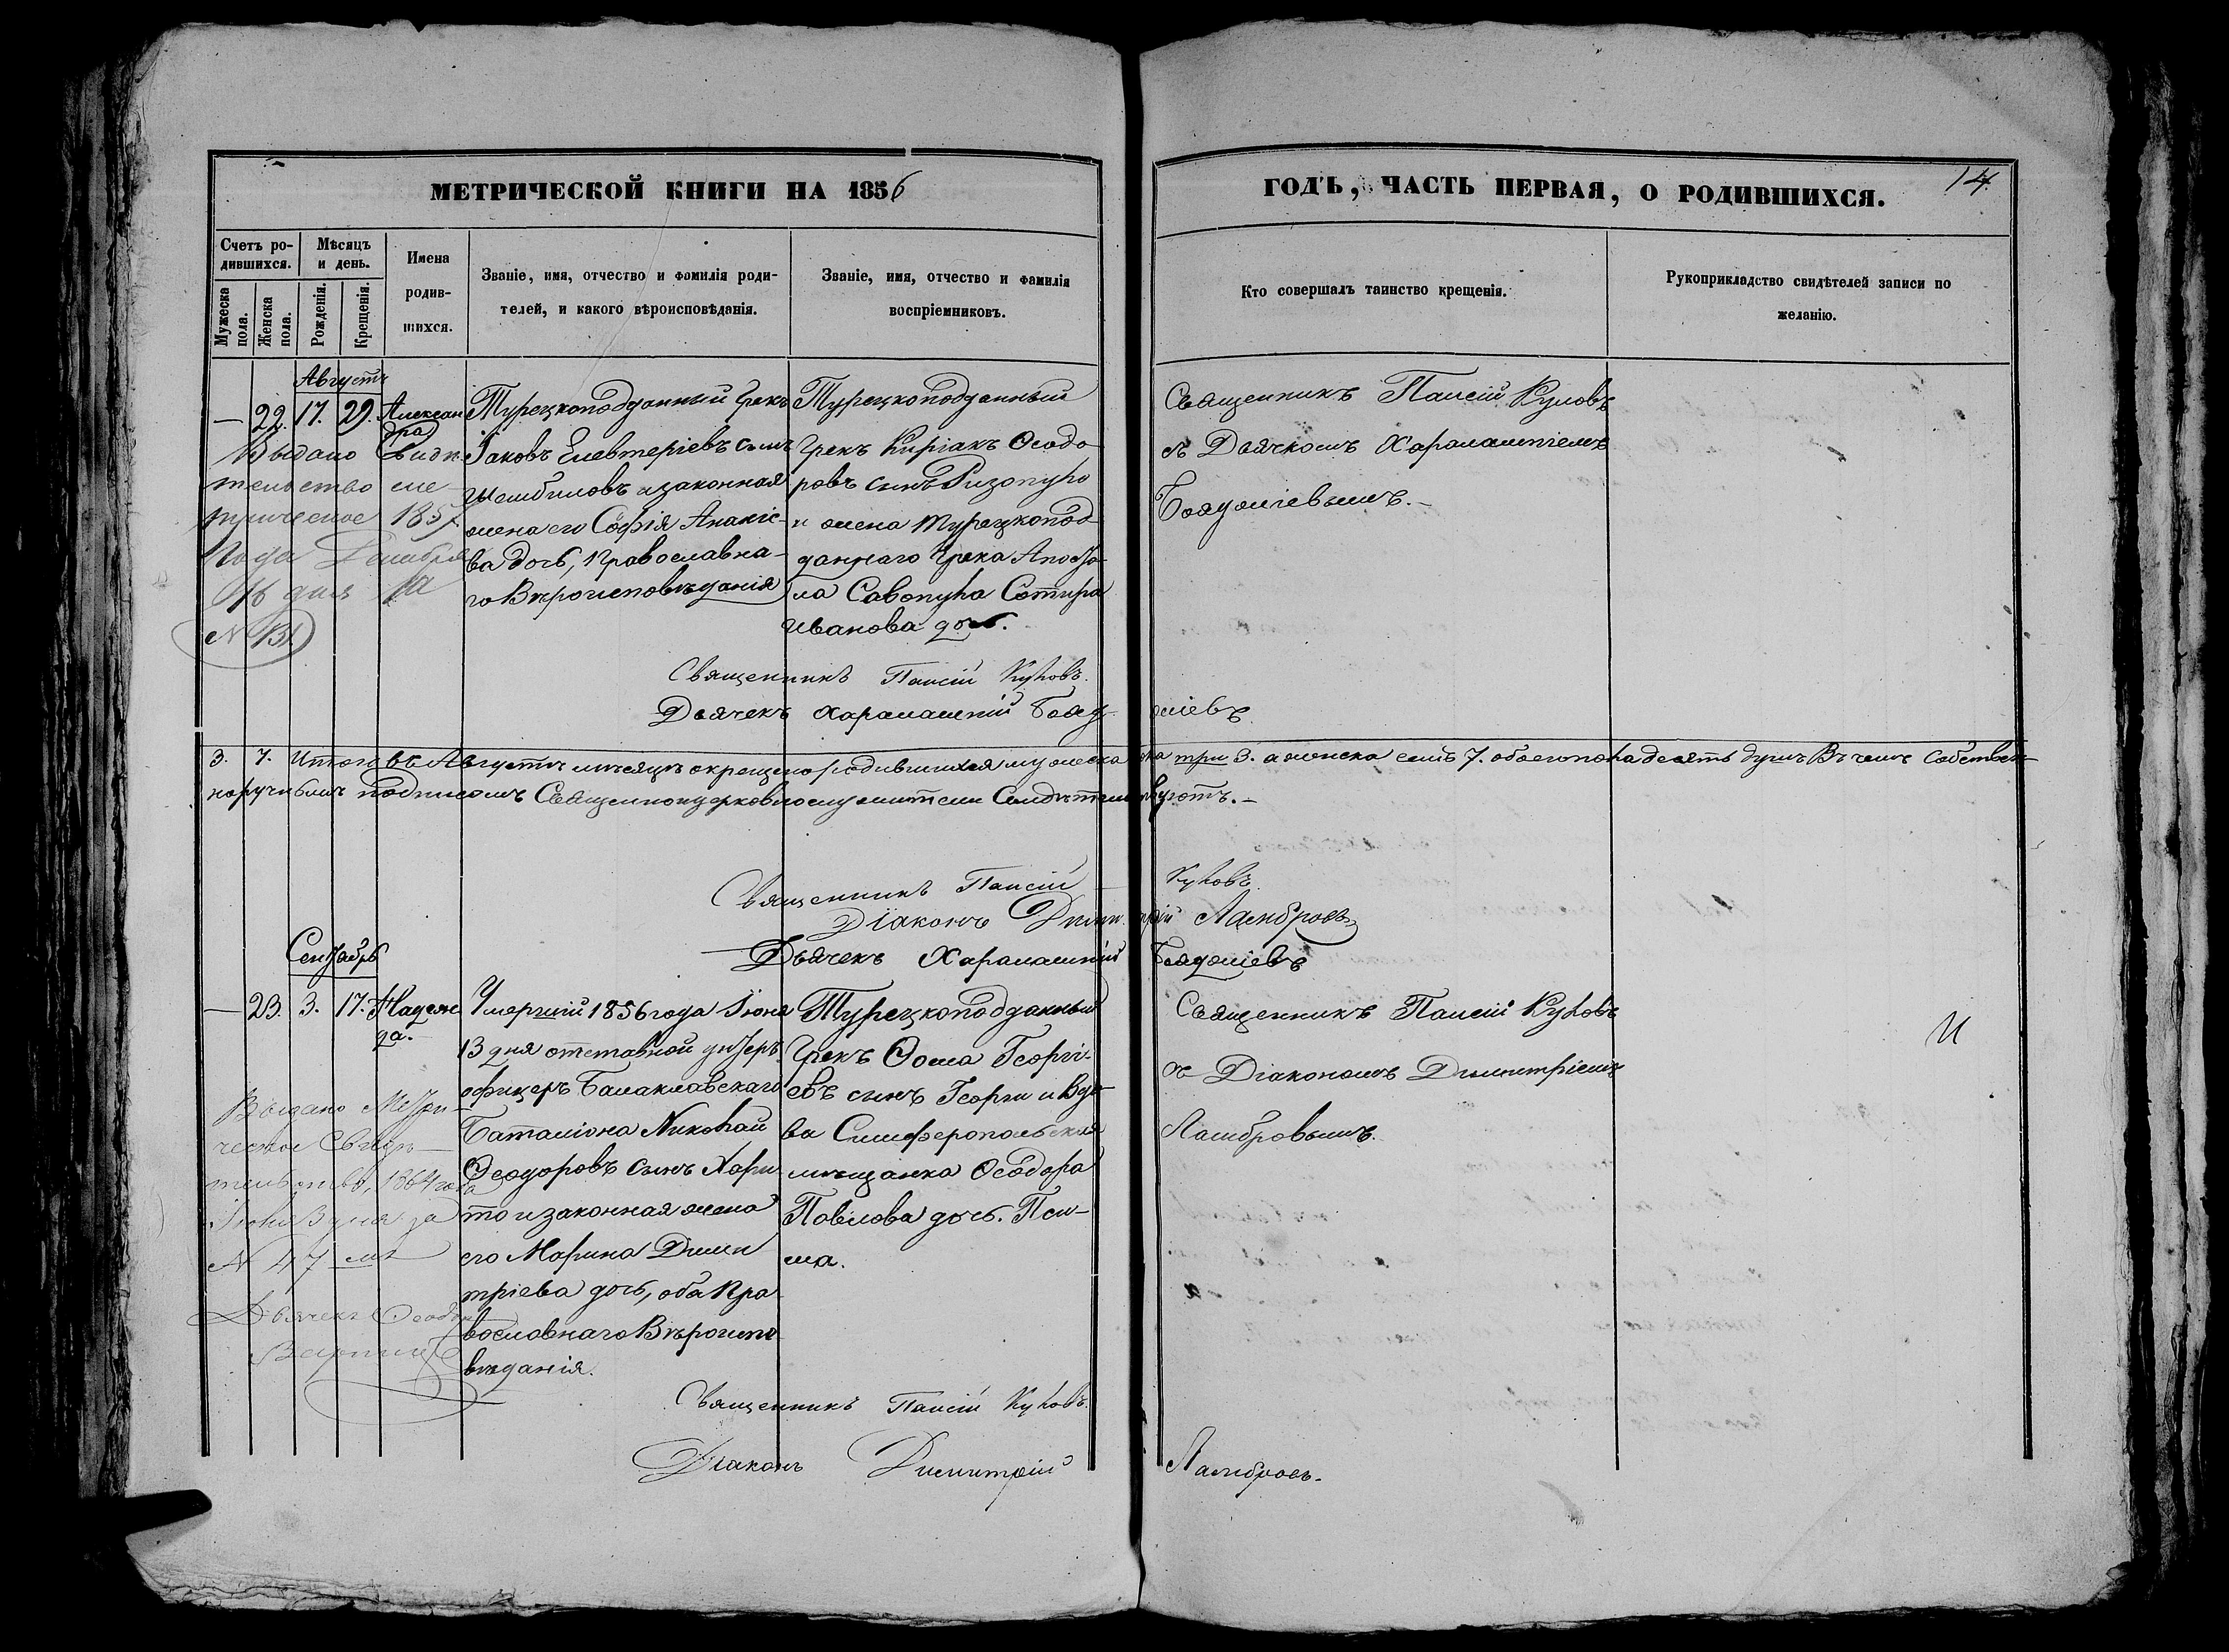 МЕТРИЧЕСКОЙ КНИГИ НА 1856
ГОДЪ, ЧАСТЬ ПЕРВАЯ, О РОДИВШИХСЯ.
14.
Счетъ ро-
дившихся.
Мѣсяцъ
и день.
Имена
родив-
шихся.
Мужеска
пола.
Женска
пола.
Рожденія.
Крещенія.
Званіе, имя, отчество и фамилія роди-
телей, и какого вѣроисповѣданія.
Званіе, имя, отчество и фамилія
воспріемниковъ.
Кто совершалъ таинство крещенія.
Рукоприкладство свидѣтелей записи по
желанію.
Августъ
— 22. 17. 29. Алексан
дра
Турецкоподданный Грекъ
Іаковъ Елевтеріевъ сынъ
и законная
жена его Софія
ва дочь, Православна-
го Вѣроисповѣданія
Турецкоподданный
Грекъ Киріакъ Ѳеодо-
ровъ сынъ Ризопуло
и жена Турецкопод-
даннаго Грека Апосто-
ла Савопуло Сотира
Иванова дочь.
Священникъ Паисій Куловъ
съ Дьячкомъ Харалампіемъ
Бояджіевымъ.-
Выдано Свидѣ-
тельство ме-
трическое 1857
года Декабря
16 дня за
N 131
Священникъ Паисій Куловъ.
Дьячекъ Харалампій Бояд-
жіевъ.
3. 7. Итого въ Августѣ мѣсяцѣ окрещено родившихся мужеска
пола три 3. а женска семь 7. обоего пола десять душъ Въ чемъ собствен-
норучнымъ подписомъ Священноицерковнослужители Свидѣтельствуютъ.-
Священникъ Паисій Куловъ.
Діаконъ Димитрій Ламбровъ
Дьячекъ Харалампій Бояджіевъ
Сентябрь
— 23. 3. 17. Надеж
да.
Умершій 1856 года Іюня
13 дня отставной унтеръ
офицеръ Балаклавскаго
Баталіона Николай
Ѳеодоровъ сынъ Хари
то и законная жена
его Марина Дими
тріева дочь, оба Пра
вославнаго Вѣроиспо
вѣданія.
Турецкоподданный
Грекъ Ѳома Георгі-
евъ сынъ Георги и вдо-
ва Симферопольская
мѣщанка Ѳеодора
Павлова дочь. Пси-
ма.
Священникъ Паисій Куловъ
съ Діакономъ Димитріемъ
Ламбровымъ.
И
Выдано Метри-
ческое Свидѣ-
тельство, 1864 года
Іюня 3 дня за
N 47 мъ
Дьячекъ
Священникъ Паисій Куловъ.
Діаконъ Димитрій
Ламбровъ.